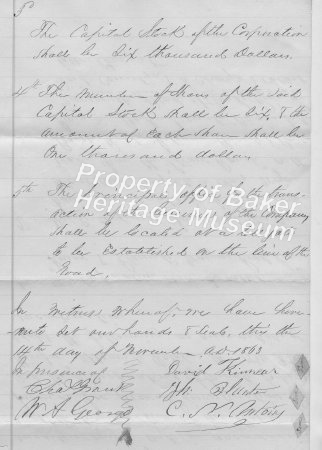 The Capital Stock of the Corporation
shall be Six thousand Dollars.
4th The number of Shares of the said
Capital Stock shall be Six, & the
amount of each Share shall be
One thousand dollars
5th The principal office for the trans-
action of the of the Company
shall be located at
to be established on the line of the
Road.
In witness whereof, we have here-
unto set our hands & Seals, this the
14th day of November A.D. 1863
In presence of David Kinnear
Chas
W. H. George C. N.
Property of Baker
Heritage Museum